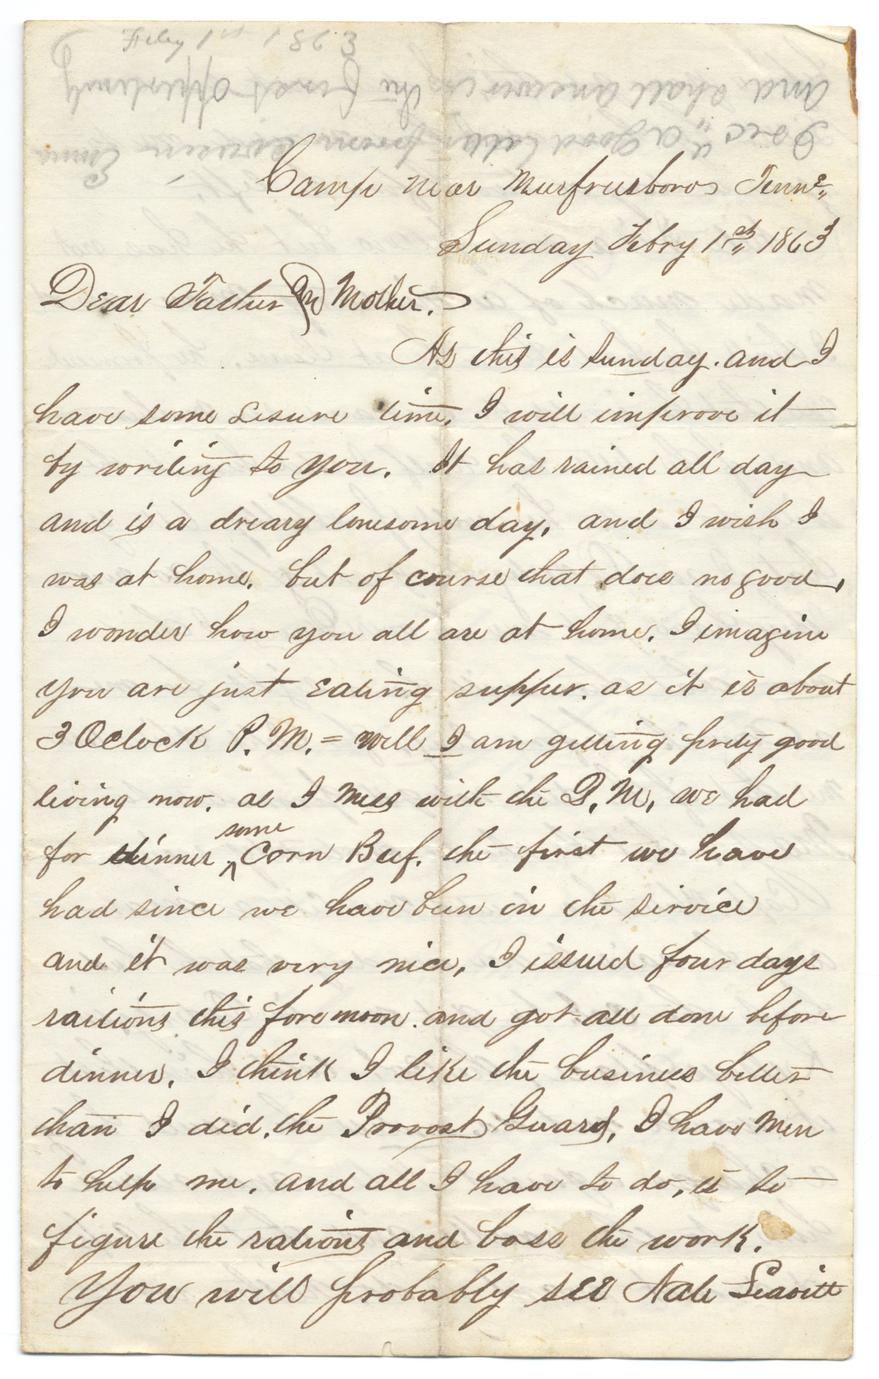 Feby 1st 1863
I rec'd a good letter from cousin Emma
and shall answer it the first oppertunity
Camp near Murfreesboro Tenne,,
Sunday Febry 1st,, 1863
Dear Father and Mother.
As this is Sunday. and I
have some Lesure time. I will improve it
by writing to you. It has rained all day
and is a dreary lonesome day, and I wish I
was at home. but of course that does no good,
I wonder how you all are at home. I imagine
you are just eating supper. as it is about
3 Oclock P. M. = Well I am getting prety good
living now. as I mess with the Q. M, we had
for dinner some Corn Beef. the first we have
had since we have been in the service
and it was very nice, I issued four days
raitions this forenoon. and got all done before
dinner. I think I like the business better
than I did. the Provost Guard, I have men
to help me. and all I have to do, is to
figure the rations and boss the work.
You will probably see Nate Leavitt